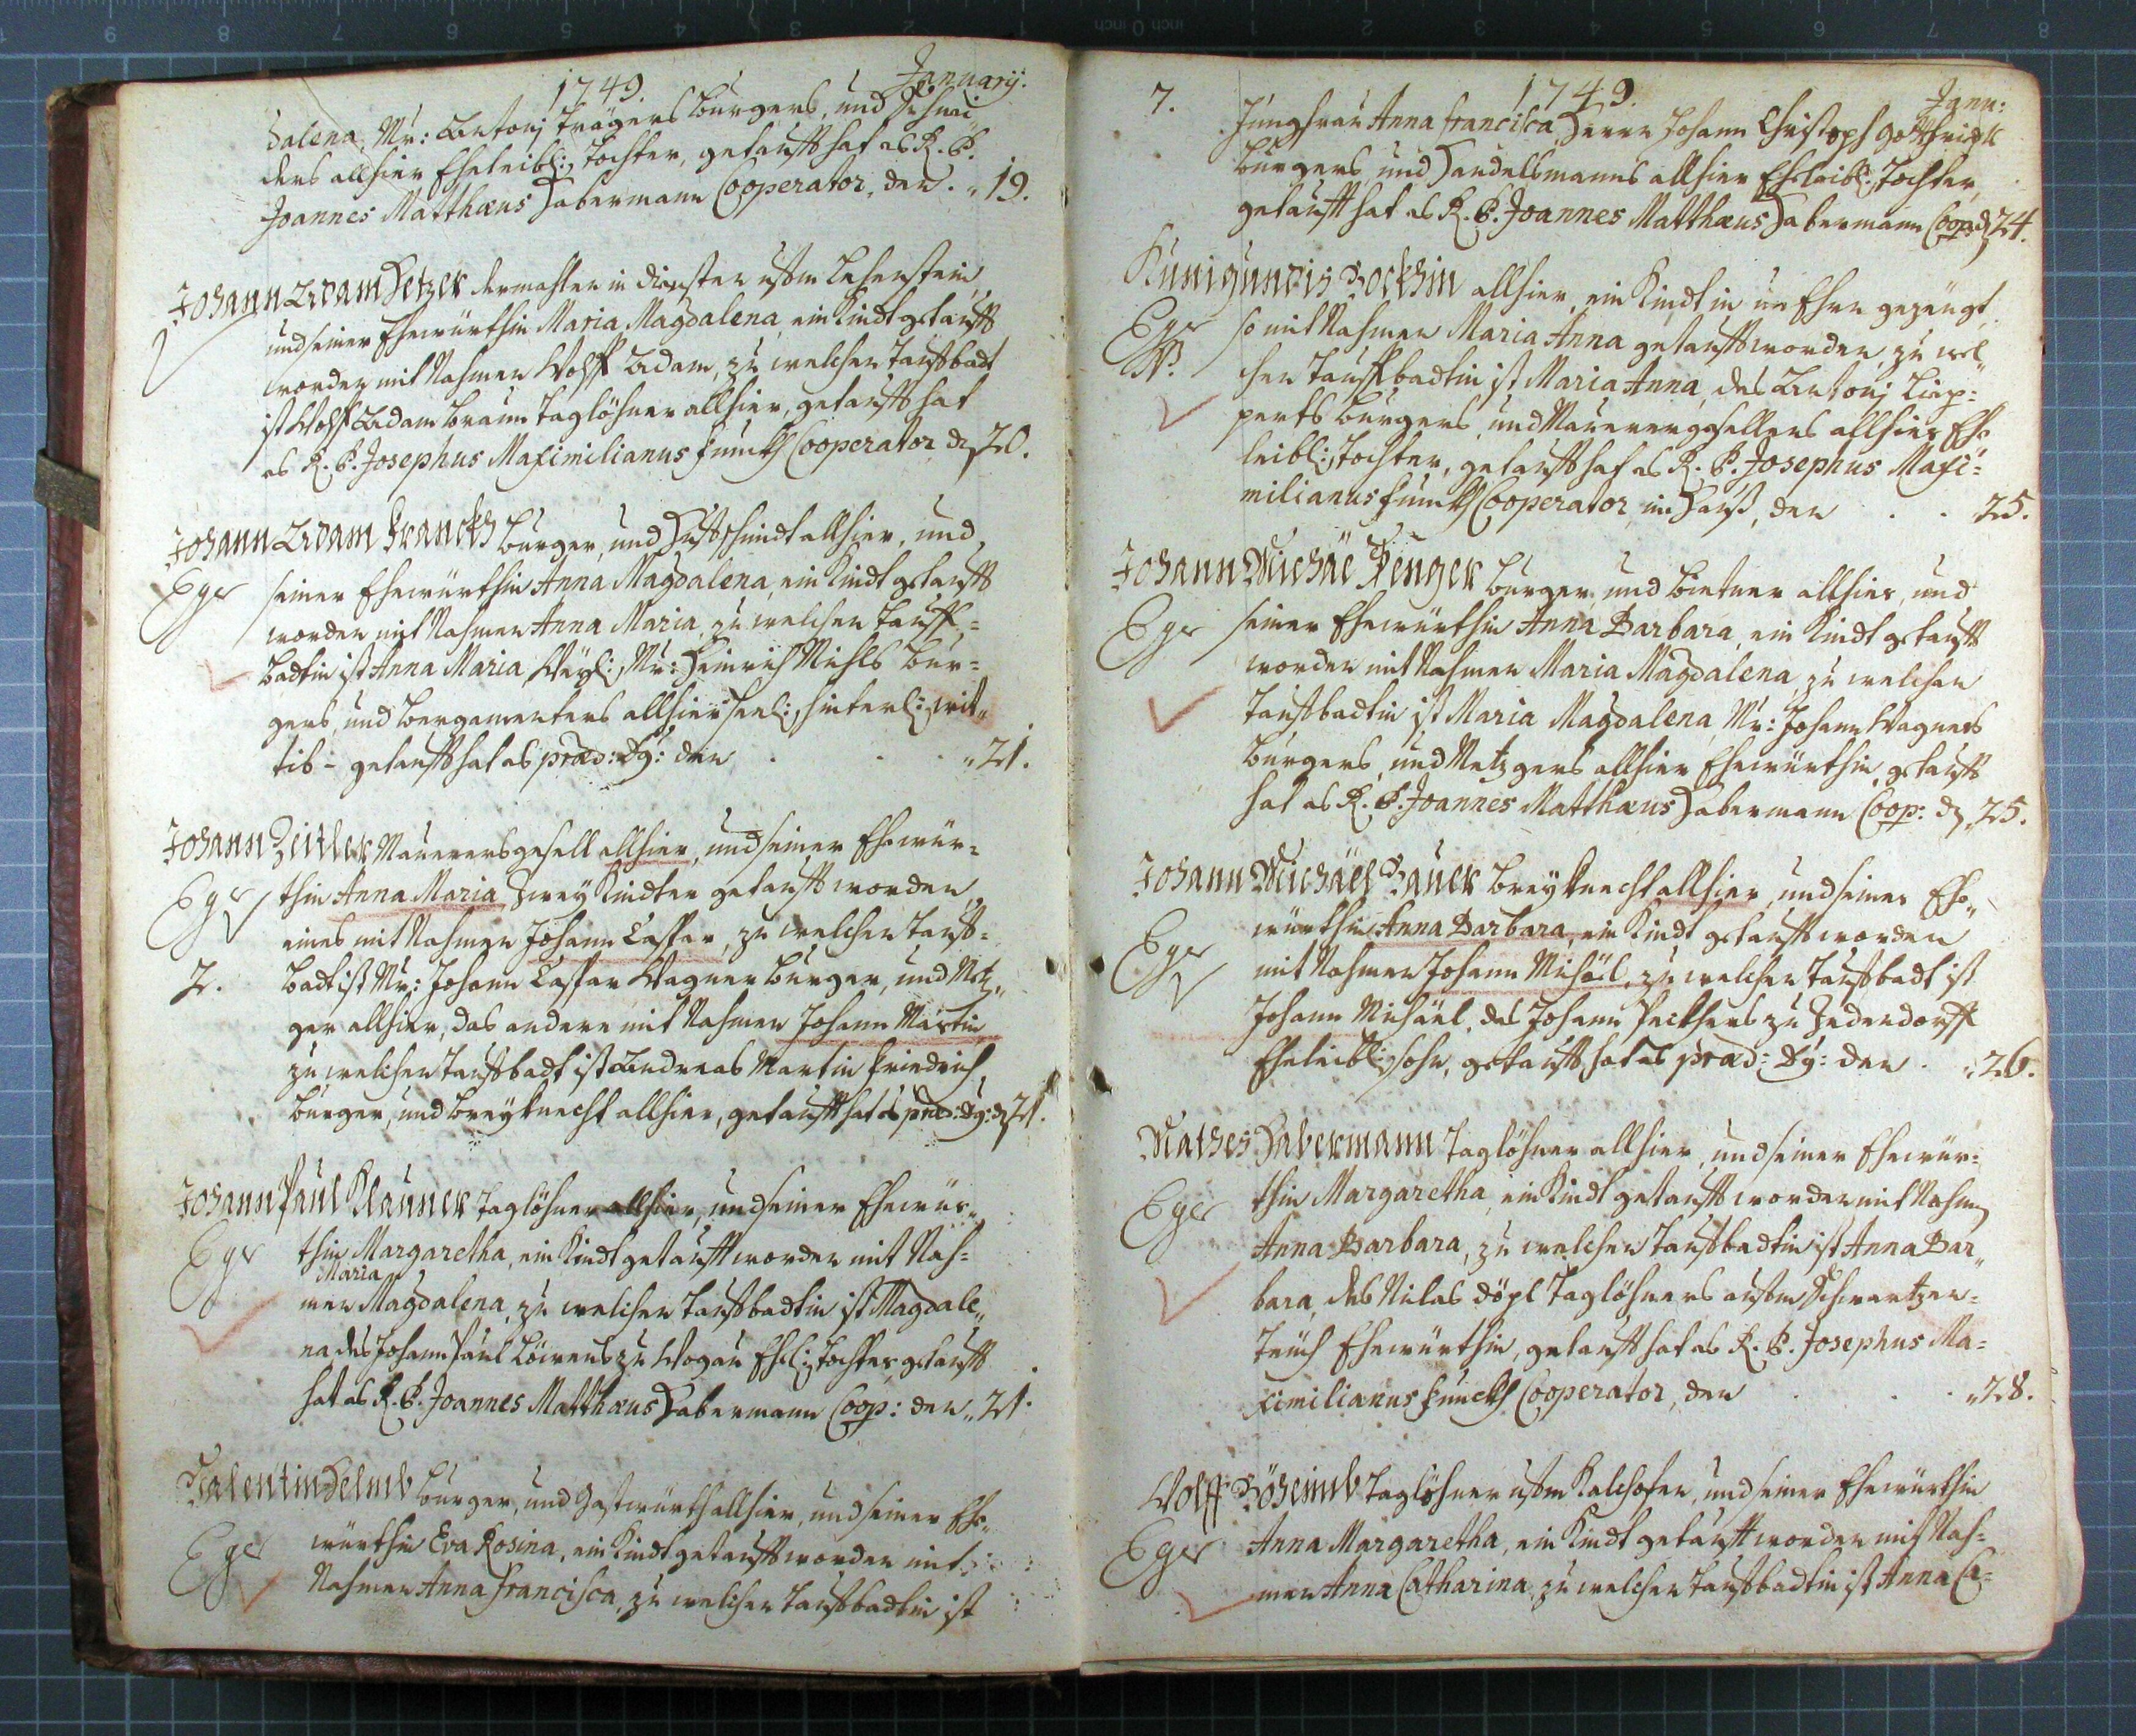 1749. Januarij.
dalena, Mr: Antonj Trägers burgers, und Schnei
ders allhier Eheleibl: Tochter, getaufft hat es R. P.
Joannes Matthæus Habermann Cooperator, den . „ 19.
Johann Adam Hetzer dermahlen in diensten ufm Lehenstein,
und seiner Ehewürthin Maria Magdalena, ein Kindt getaufft
worden mit Nahmen Wolff Adam, zu welchen Tauffbadt
ist Wolff Adam Braun Taglöhner allhier, getaufft hat
es R. P. Josephus Maximilianus Funckh Cooperator d 20.
Johann Adam Franckh burger, und Huffschmidt allhier, und
Eger seiner Ehewürthin Anna Magdalena, ein Kindt getaufft
worden mit Nahmen Anna Maria, zu welchen Tauff=
badtin ist Anna Maria, Weyl: Mr: Heinrich Michls bur=
gers, und bergamenters allhier seel: hinterl: wit„
tib - getaufft hat es præd: Dg: den . . . „ 21.
Johann Zeitler Maurersgesell allhier, und seiner Ehewür=
Eger thin Anna Maria, zwey Kindter getaufft worden,
eines mit Nahmen Johann Caspar, zu welchen Tauff=
2. badt ist Mr: Johann Caspar Wagner burger, und Metz„
ger allhier, das andere mit Nahmen Johann Martin,
zu welchen Tauffbadt ist Andreas Martin Friedrich,
burger, und breyknecht allhier, getaufft hat es præd: Dg: d 21.
Johann Paul Klauner Taglöhner allhier, und seiner Ehewür„
Eger thin Margaretha, ein Kindt getaufft worden mit Nah=
Maria
men Magdalena, zu welchen Tauffbadtin ist Magdale„
na des Johann Paul zu Wogau Ehel: Tochter, getaufft
hat es R. P. Joannes Matthæus Habermann Coop: den „ 21.
Valentin Helmb burger, und Gastwürth allhier, und seiner Ehe„
Eger würthin Eva Rosina, ein Kindt getaufft worden mit
Nahmen Anna Francisca, zu welchen Tauffbadtin ist
7. 1749. Janu:
Jungfrau Anna Francisca, Herrn Johann Christoph Gottfridts
burgers, und Handelsmanns allhier Eheleibl: Tochter,
getaufft hat es R. P. Joannes Matthæus Habermann Coop: d 24.
Kunigundis Bockhin allhier, ein Kindt in un Ehren gezeugt,
Eger so mit Nahmen Maria Anna getaufft worden, zu wel„
N. chen Tauffbadtin ist Maria Anna, des Antonj Lip=
perts burgers, und Maurergesellens allhier Ehe
leibl: Tochter, getaufft hat es R. P. Josephus Maxi=
milianus Funckh Cooperator, im Hauß, den . . 25.
Johann Michäe Penger burger, und bietner allhier, und
Eger seiner Ehewürthin Anna Barbara, ein Kindt getaufft
worden mit Nahmen Maria Magdalena, zu welchen
Tauffbadtin ist Maria Magdalena, Mr: Johann Wagners
burgers, und Metzgers allhier Ehewürthin, getaufft
hat es R. P. Joannes Matthæus Habermann Coop: d „ 25.
Johann Michäel Bauer breyknecht allhier, und seiner Ehe„
Eger würthin Anna Barbara, ein Kindt getaufft worden
mit Nahmen Johann Michäel, zu welchen Tauffbadt ist
Johann Michäel, des Johann zu Zedendorff
Eheleibl: sohn, getaufft hat es præd: Dg: den . „ 26.
Mathes Habermann Taglöhner allhier, und seiner Ehewür=
Eger thin Margaretha, ein Kindt getaufft worden mit Nahmen
Anna Barbara, zu welchen Tauffbadtin ist Anna Bar„
bara, des Niclas döpl Taglöhners aufm Schwartzen=
Teuch Ehewürthin, getaufft hat es R. P. Josephus Ma=
ximilianus Funckh Cooperator, den . . „ 28.
Wolff Böheimb Taglöhner ufm Kalchofen, und seiner Ehewürthin
Eger Anna Margaretha, ein Kindt getaufft worden mit Nah=
men Anna Catharina, zu welchen Tauffbadtin ist Anna Ca=